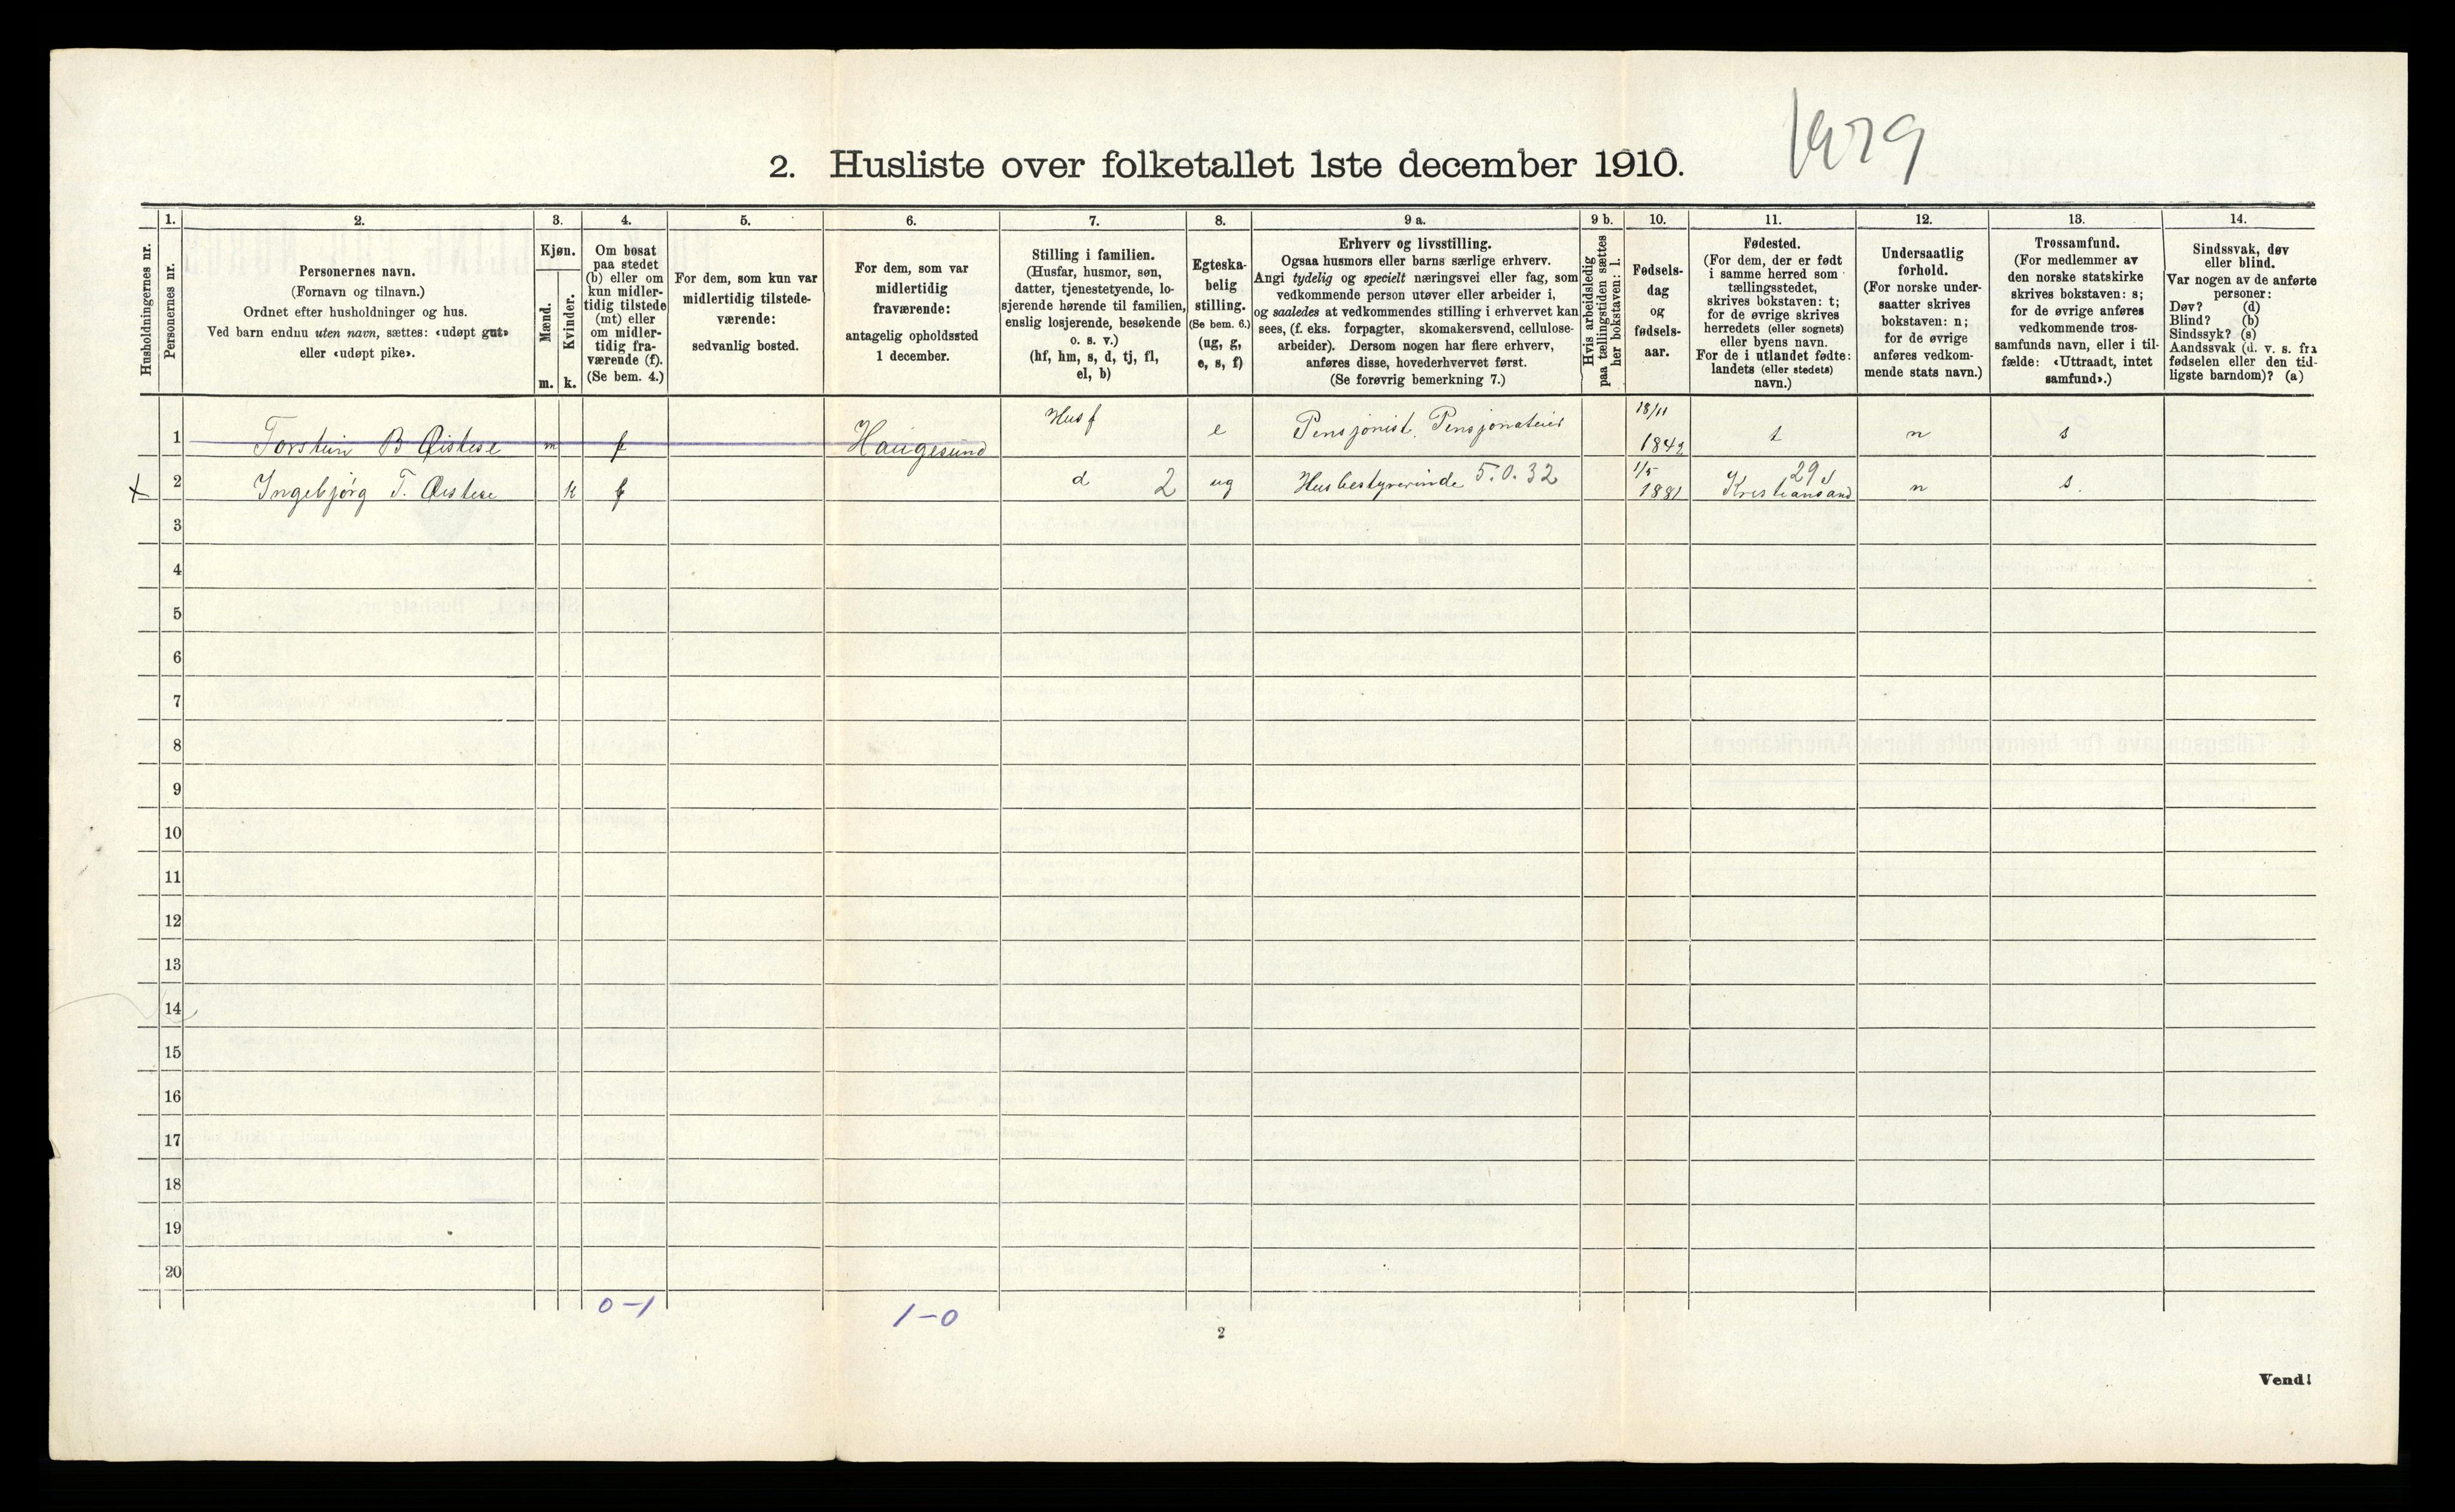 1979
2. Husliste over folketallet 1ste december 1910.
Husholdningernes nr.
1. Personernes nr.
2.
Personernes navn.
(Fornavn og tilnavn.)
Ordnet efter husholdninger og hus.
Ved barn endnu uten navn, sættes: «udøpt gut»
eller «udøpt pike».
3.
Kjøn.
Mænd. Kvinder.
m. k.
4.
Om bosat
paa stedet
(b) eller om
kun midler-
tidig tilstede
(mt) eller
om midler-
tidig fra-
værende (f).
(Se bem. 4.)
5.
For dem, som kun var
midlertidig tilstede-
værende:
sedvanlig bosted.
6.
For dem, som var
midlertidig
fraværende:
antagelig opholdssted
1 december.
7.
Stilling i familien.
(Husfar, husmor, søn,
datter, tjenestetyende, lo-
sjerende hørende til familien,
enslig losjerende, besøkende
o. s. v.)
(hf, hm, s, d, tj, fl,
el, b)
8.
Egteska-
belig
stilling.
(Se bem. 6.)
(ug, g,
e, s, f)
9 a.
Erhverv og livsstilling.
Ogsaa husmors eller barns særlige erhverv.
Angi tydelig og specielt næringsvei eller fag, som
vedkommende person utøver eller arbeider i,
og saaledes at vedkommendes stilling i erhvervet kan
sees, (f. eks. forpagter, skomakersvend, cellulose-
arbeider). Dersom nogen har flere erhverv,
anføres disse, hovederhvervet først.
(Se forøvrig bemerkning 7.)
9 b.
Hvis arbeidsledig
paa tællingstiden sættes
her bokstaven: l.
10.
Fødsels-
dag
og
fødsels-
aar.
11.
Fødested.
(For dem, der er født
i samme herred som
tællingsstedet,
skrives bokstaven: t;
for de øvrige skrives
herredets (eller sognets)
eller byens navn.
For de i utlandet fødte:
landets (eller stedets)
navn.)
12.
Undersaatlig
forhold.
(For norske under-
saatter skrives
bokstaven: n;
for de øvrige
anføres vedkom-
mende stats navn.)
13.
Trossamfund.
(For medlemmer av
den norske statskirke
skrives bokstaven: s;
for de øvrige anføres
vedkommende tros-
samfunds navn, eller i til-
fælde: «Uttraadt, intet
samfund».)
14.
Sindssvak, døv
eller blind.
Var nogen av de anførte
personer:
Døv? (d)
Blind? (b)
Sindssyk? (s)
Aandssvak (d. v. s. fra
fødselen eller den tid-
ligste barndom)? (a)
1 Torstein B Øistese m f Haugesund Husf e Pensjonist. Pensjonateier 18/11 1842 t n s
x 2 Ingebjørg T. Øistese k f d 2 ug Husbestyrerinde 5.0.32 1/5 1881 29 Kristiansand n s.
3
4
5
6
7
8
9
10
11
12
13
14
15
16
17
18
19
20
0-1 1-0
2
Vend!